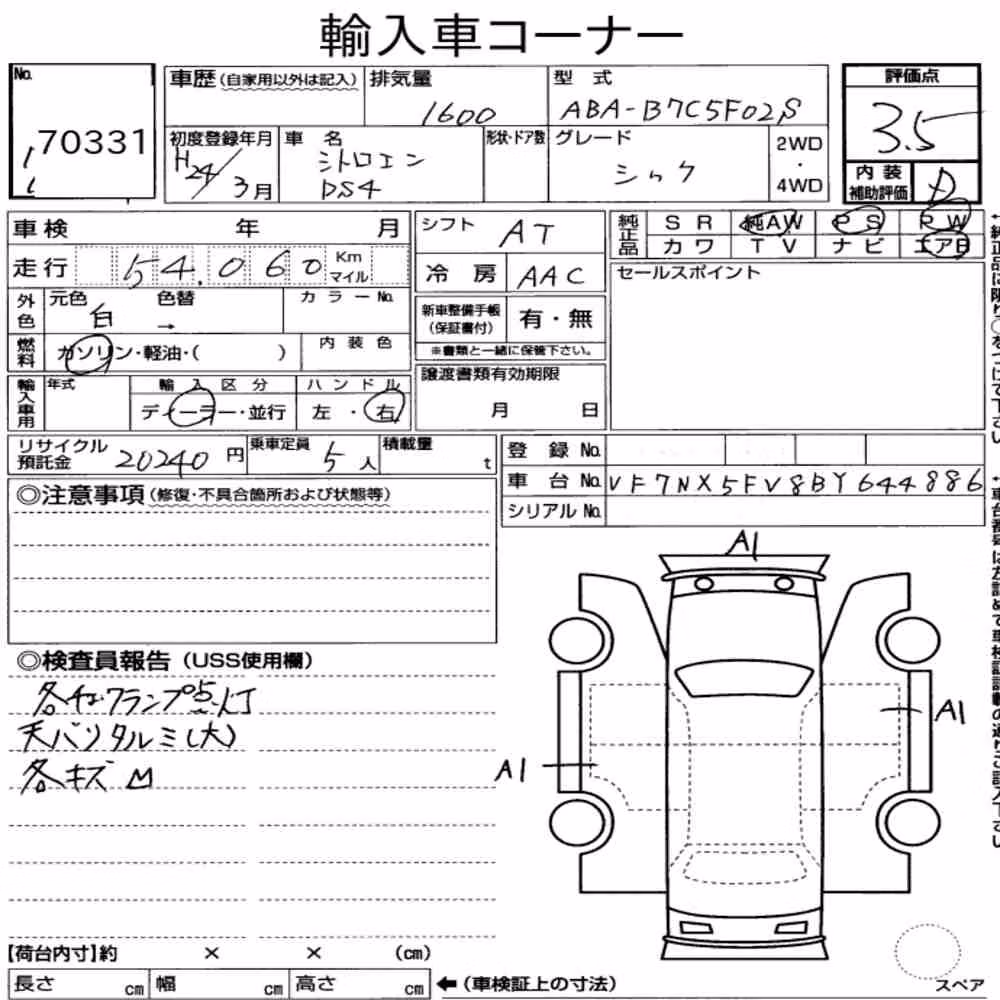 輸入車コーナー
No.
70331
車歴 (自家用以外は記入)
排気量
1600
型式
ABA-B7C5F02S
初度登録年月
H24/3月
車名
シトロエン
DS4
形状・ドア数
グレード
シック
2WD
・
4WD
評価点
3.5
内装
補助評価
車検 年 月
走行 54,060 Km
マイル
外色
元色
白
色替
→
カラーNo.
燃料
ガソリン・軽油・( )
内装色
輸入車用
年式
輸入区分
ディーラー・並行
ハンドル
左・右
シフト
AT
冷房
AAC
新車整備手帳
(保証書付)
有・無
※書類と一緒に保管下さい。
譲渡書類有効期限
月 日
純正品
SR 純AW PS PW
カワ TV ナビ エアB
セールスポイント
リサイクル
預託金
20240円
乗車定員
5人
積載量
t
登録No.
車台No. VF7NX5FV8BY644886
シリアルNo.
◎注意事項 (修復・不具合箇所および状態等)
◎検査員報告 (USS使用欄)
各チェックランプ点灯
天バリタルミ(大)
各キズ
A1
A1
A1
【荷台内寸】約 × × (cm)
長さ cm 幅 cm 高さ cm
←(車検証上の寸法)
スペア